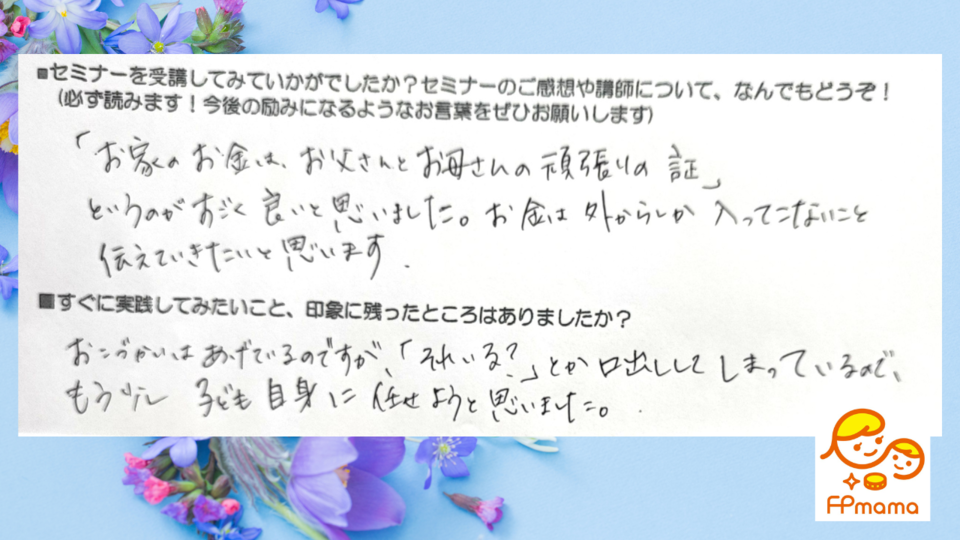 ■セミナーを受講してみていかがでしたか？セミナーのご感想や講師について、なんでもどうぞ！
（必ず読みます！今後の励みになるようなお言葉をぜひお願いします）
「お家のお金は、お父さんとお母さんの頑張りの証」
というのがすごく良いと思いました。お金は外からしか入ってこないこと
伝えていきたいと思います.
■すぐに実践してみたいこと、印象に残ったところはありましたか？
おこづかいはあげているのですが、「それいる？」とか口出ししてしまっているので、
もう少し子ども自身に任せようと思いました。
FPmama